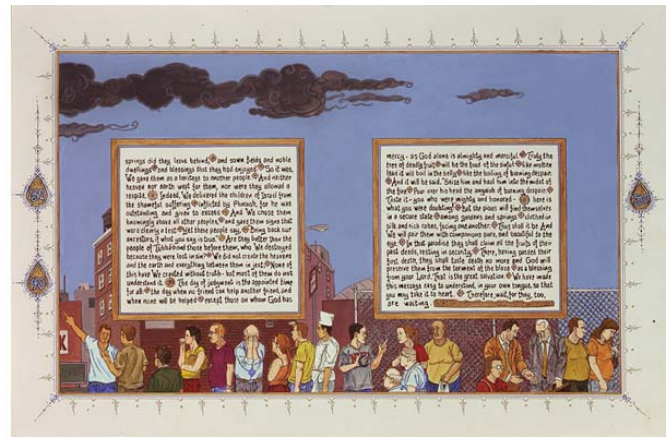 springs did they leave behind, and sown fields and noble
dwellings and blessings that they had enjoyed. So it was.
We gave them as a heritage to another people. And neither
heaven nor earth wept for them, nor were they allowed a
respite. Indeed, We delivered the children of Israel from
the shameful suffering inflicted by Pharaoh, for he was
outstanding and given to excess. And We chose them
knowingly above all other peoples, and gave them signs that
were clearly a test. Yet these people say, Bring back our
ancestors, if what you say is true. Are they better than the
people of Tubba and those before them, who We destroyed
because they were lost in sin? We did not create the heavens
and the earth and everything between them in jest. None of
this have We created without truth - but most of them do not
understand it. The day of judgment is the appointed time
for all - the day when no friend can help another friend, and
when none will be helped except those on whom God has
mercy - as God alone is almighty and merciful. Truly the
tree of deadly fruit will be the food of the sinful. Like molten
lead it will boil in the belly like the boiling of burning despair.
And it will be said, "Seize him and haul him into the midst of
the fire! Pour over his head the anguish of burning despair.
Taste it - you who were mighty and honored - here is
what you were doubting." But the pious will find themselves
in a secure state among gardens and springs clothed in
silk and rich robes, facing one another. Thus shall it be. And
We will pair them with companions pure, and beautiful to the
eye. In that paradise they shall claim all the fruits of their
past deeds, resting in security. There, having passed their
first death, they shall taste death no more and God will
preserve them from the torment of the blaze as a blessing
from your Lord. That is the great salvation. We have made
this message easy to understand, in your own tongue, so that
you may take it to heart. Therefore, wait, for they, too,
are waiting.